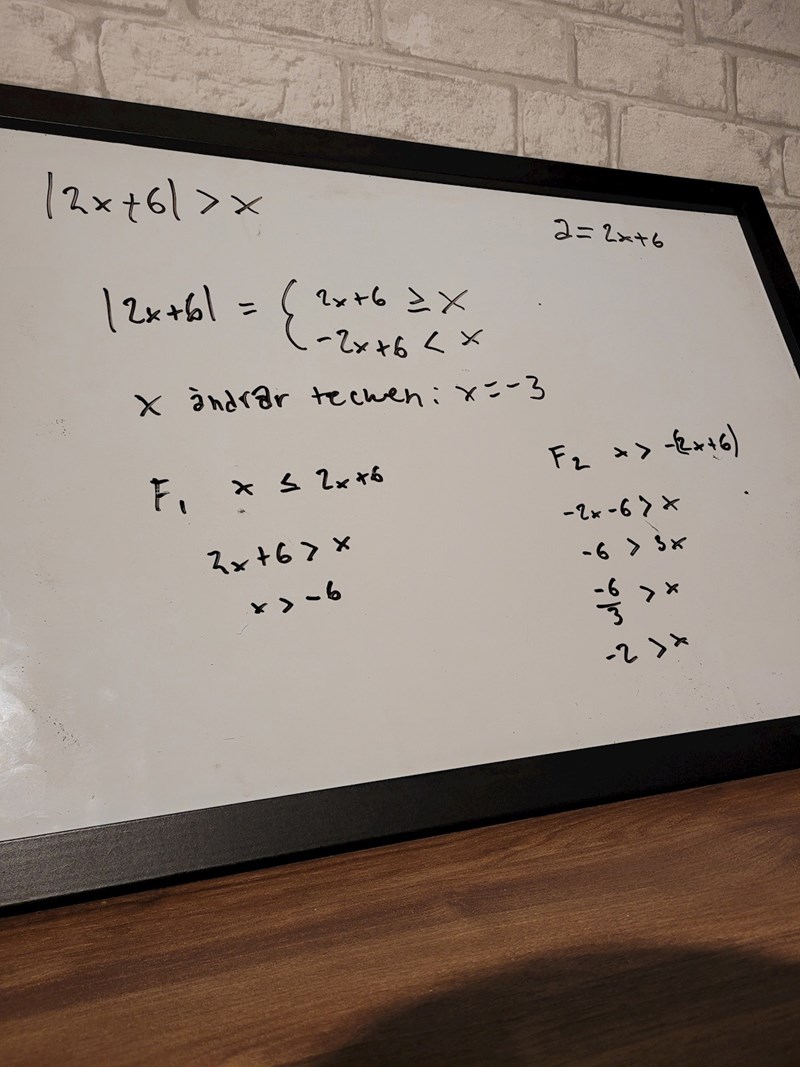 |2x+6| > x
a = 2x+6
|2x+6| = { 2x+6 ≥ x
-2x+6 < x
x ändrar tecken: x = -3
F₁ x ≤ 2x+6
2x+6 > x
x > -6
F₂ x > -(2x+6)
-2x-6 > x
-6 > 3x
-6/3 > x
-2 > x